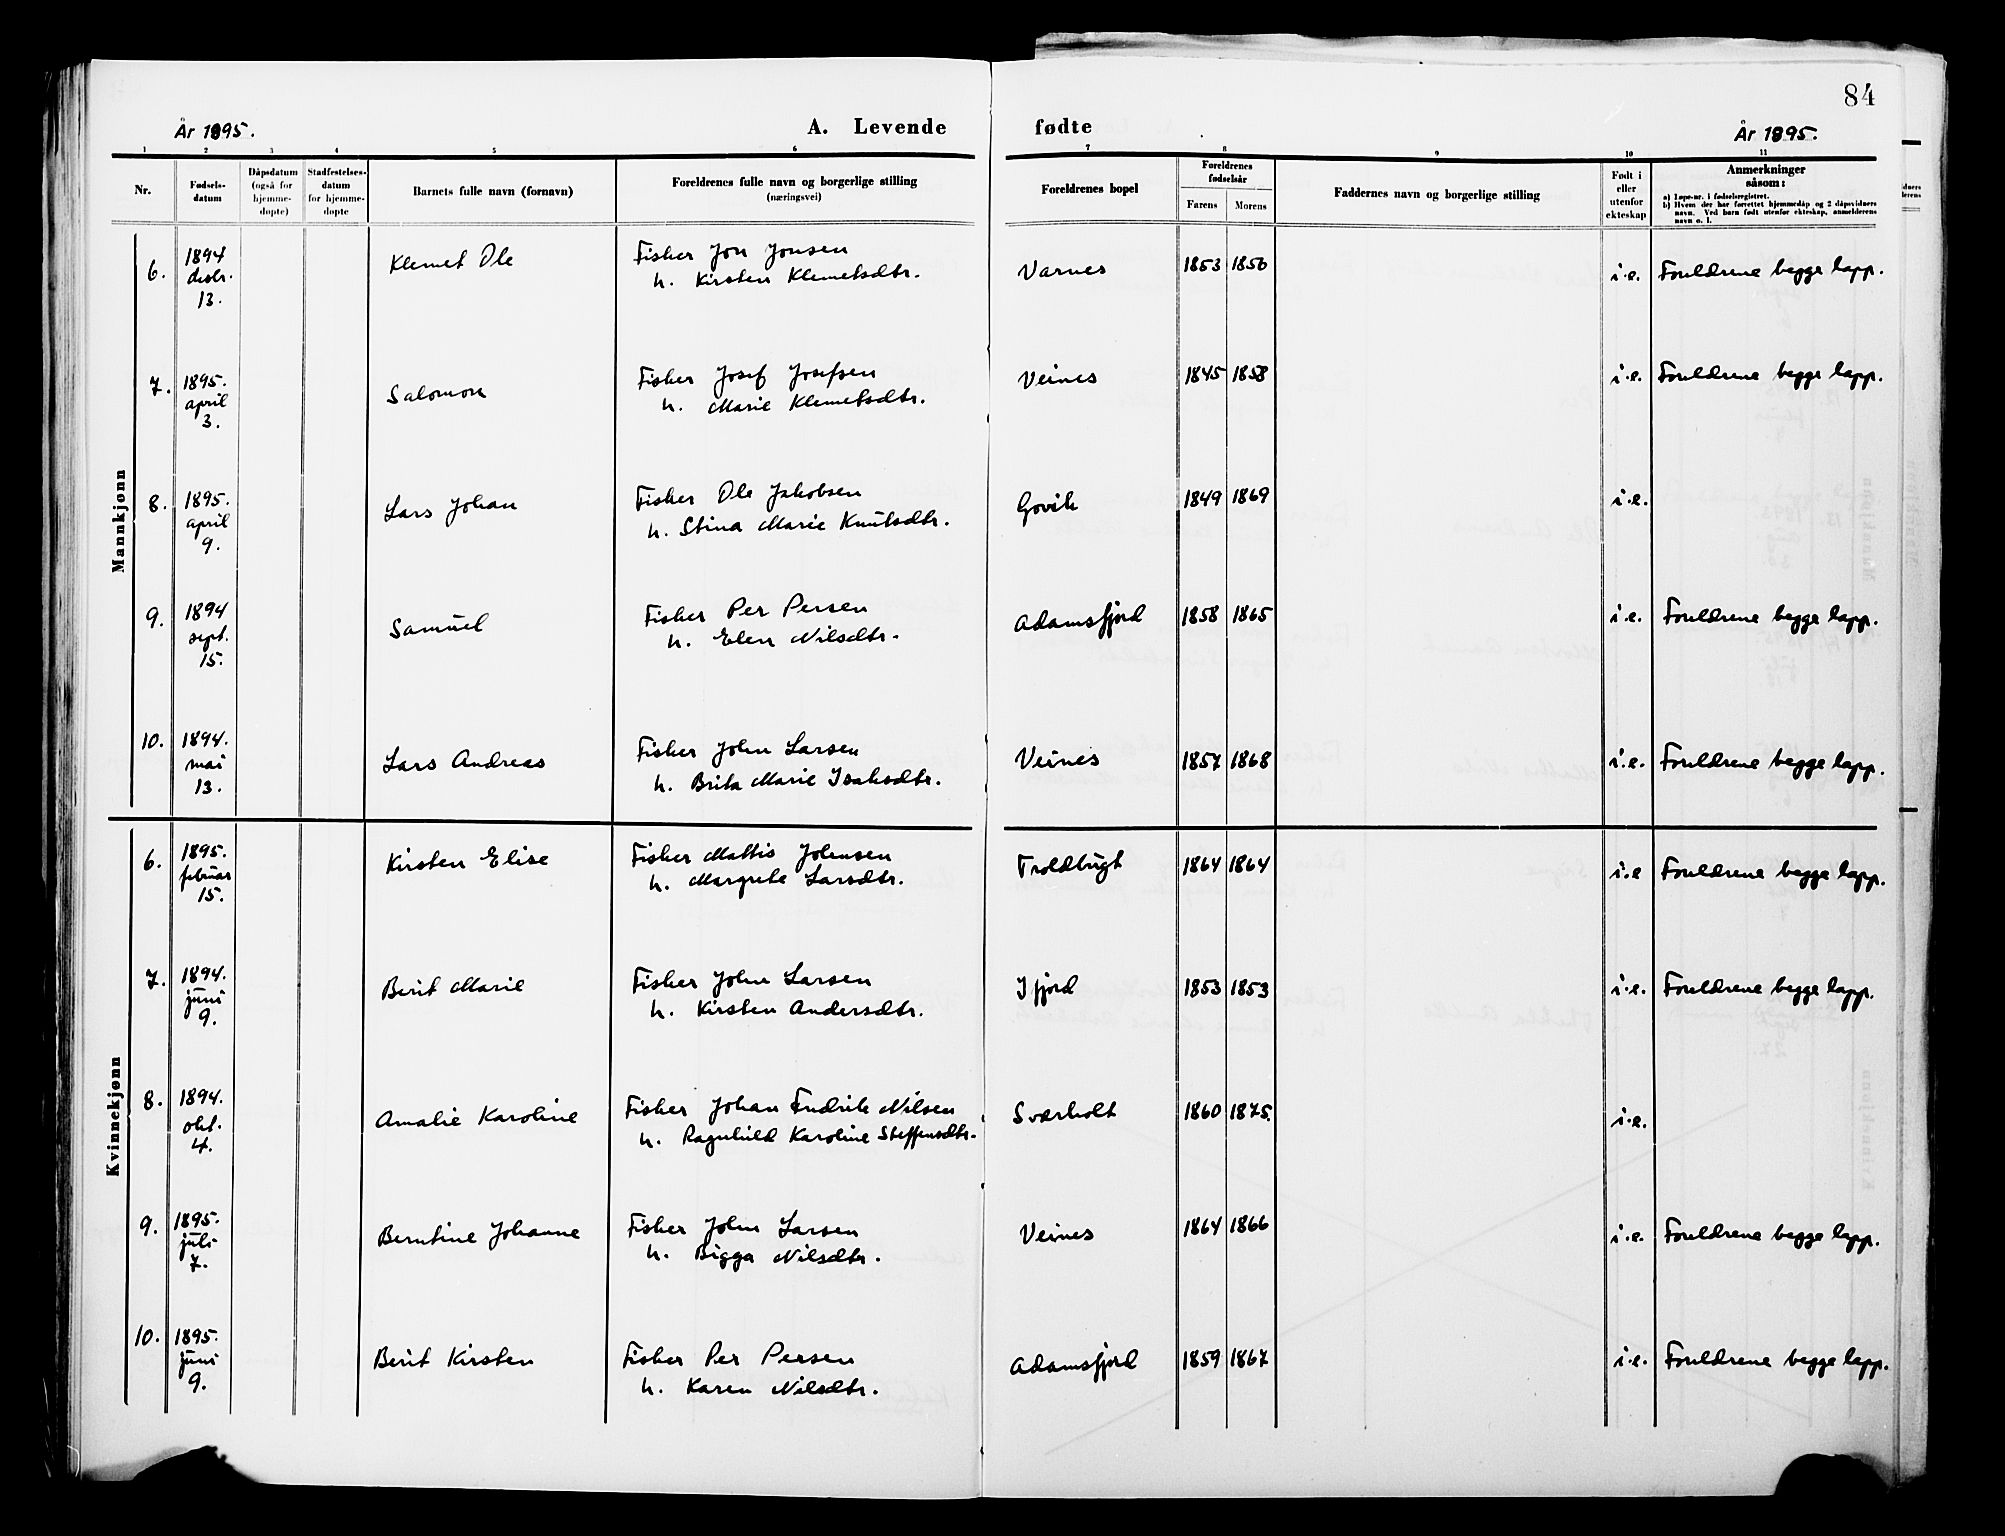 84
År 1895.
A. Levende
fødte
År 1895.
1 2 3 4 5 6 7 8 9 10 11
Nr.
Fødsels-
datum
Dåpsdatum
(også for
hjemme-
døpte)
Stadfestelses-
datum
for hjemme-
døpte
Barnets fulle navn (fornavn)
Foreldrenes fulle navn og borgerlige stilling
(næringsvei)
Foreldrenes bopel
Foreldrenes
fødselsår
Farens
Morens
Faddernes navn og borgerlige stilling
Født i
eller
utenfor
ekteskap
Anmerkninger
såsom:
a) Løpe-nr. i fødselsregistret.
b) Hvem der har forrettet hjemmedåp og 2 dåpsvidners
navn. Ved barn født utenfor ekteskap, anmelderens
navn o. l.
Mannkjønn
6.
1894
desbr.
13.
Klemet Ole
Fisker Jon Jonsen
h. Kirsten Klemetsdtr.
Varnes
1853 1856
i.e.
Foreldrene begge lapp.
7.
1895.
april
3.
Salomon
Fisker Josef Josefsen
h. Marie Klemetsdtr.
Veines
1845 1858
i.e.
Foreldrene begge lapp.
8.
1895.
april
9.
Lars Johan
Fisker Ole Jakobsen
h. Stina Marie Knutsdtr.
Govik
1849 1869
i.e.
9.
1894
sept.
15.
Samuel
Fisker Per Persen
h. Elen Nilsdtr.
Adamsfjord
1858 1865
i.e.
Foreldrene begge lapp.
10.
1894.
mai
13.
Lars Andreas
Fisker John Larsen
h. Brita Marie Isaksdtr.
Veines
1857 1868
i.e.
Foreldrene begge lapp.
Kvinnekjønn
6.
1895.
februar
15.
Kirsten Elise
Fisker Mattis Johnsen
h. Margrete Larsdtr.
Troldbugt
1864 1864
i.e
Foreldrene begge lapp.
7.
1894.
juni
9.
Berit Marie
Fisker John Larsen
h. Kirsten Andersdtr.
Ifjord
1853 1853
i.e.
Foreldrene begge lapp.
8.
1894.
okt.
4.
Amalie Karoline
Fisker Johan Fredrik Nilsen
h. Ragnhild Karoline Steffensdtr.
Sværholt
1860 1875.
i.e.
9.
1895.
juli
7.
Berntine Johanne
Fisker John Larsen
h. Bigga Nilsdtr.
Veines
1864 1866
i.e.
Foreldrene begge lapp.
10.
1895.
juni
9.
Berit Kirsten
Fisker Per Persen
h. Karen Nilsdtr.
Adamsfjord
1859 1867
i.e.
Foreldrene begge lapp.